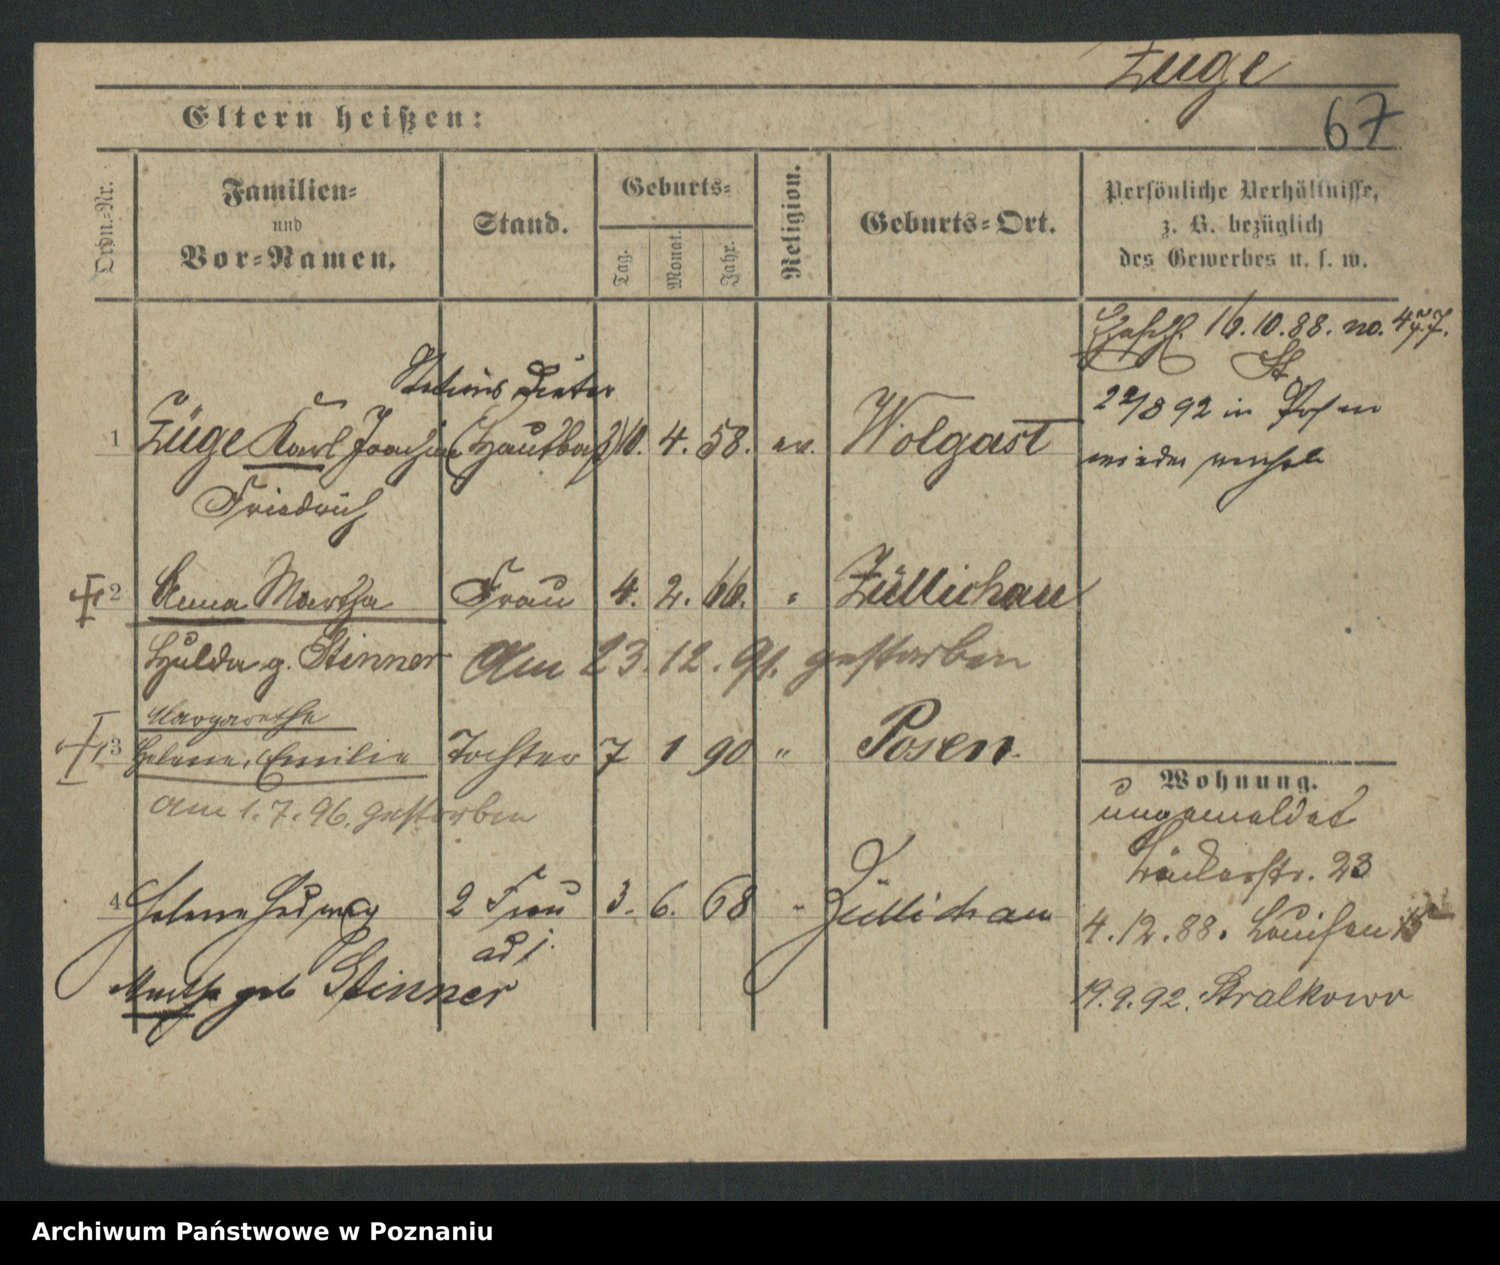 Züge
Eltern heißen:
67
Ordn.-Nr.
Familien-
und
Vor-Namen.
Stand.
Geburts-
Tag.
Monat.
Jahr.
Religion.
Geburts-Ort.
Persönliche Verhältnisse,
z. B. bezüglich
des Gewerbes u. s. w.
16.10.88. no.
22/8 92 in Posen
wieder
Stations
1 Züge Karl Joachim 10. 4. 58. ev. Wolgast
Friedrich
2 Anna Martha Frau 4. 2. 66. " Züllichau
Hulda g. Stinner Am 23.12.91. gestorben
Margarethe
3 Helene, Emilie Tochter 7 1 90 " Posen
am 1.7.96. gestorben
Wohnung.
ungemeldet
Bäckerstr. 23
4 Helene Hedwig 2 Frau 3. 6. 68 " Züllichau
ad 1.
4.12.88. Louisen 15
Martha geb Stinner
19.9.92. Stralkowo
Archiwum Państwowe w Poznaniu